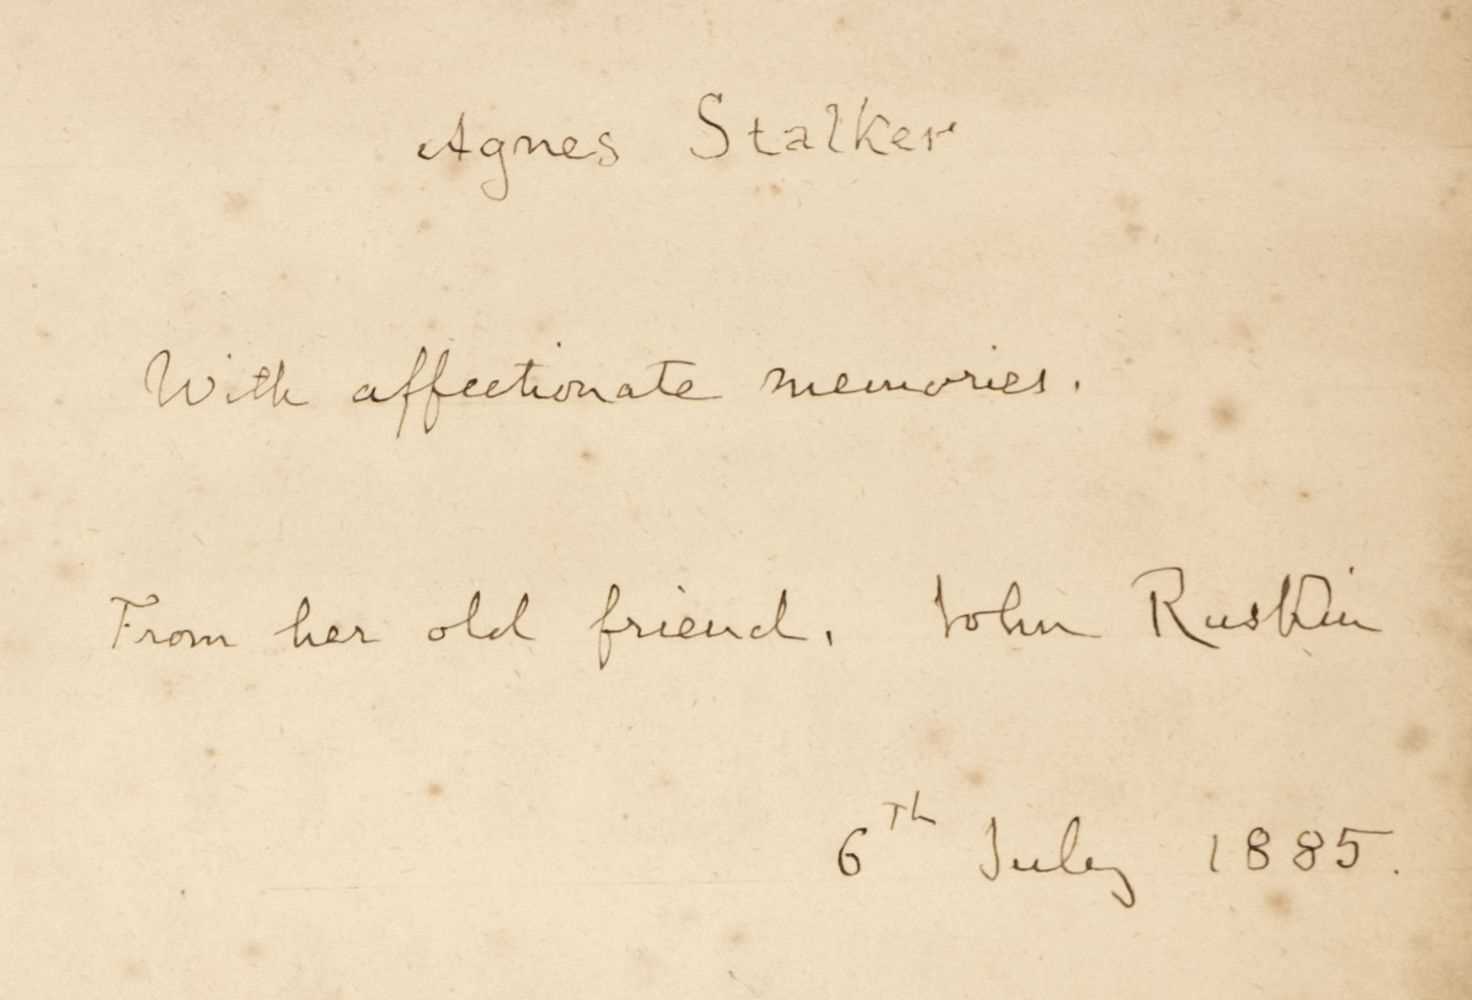 Agnes Stalker
With affectionate memories.
From her old friend. John Ruskin
6Th July 1885.